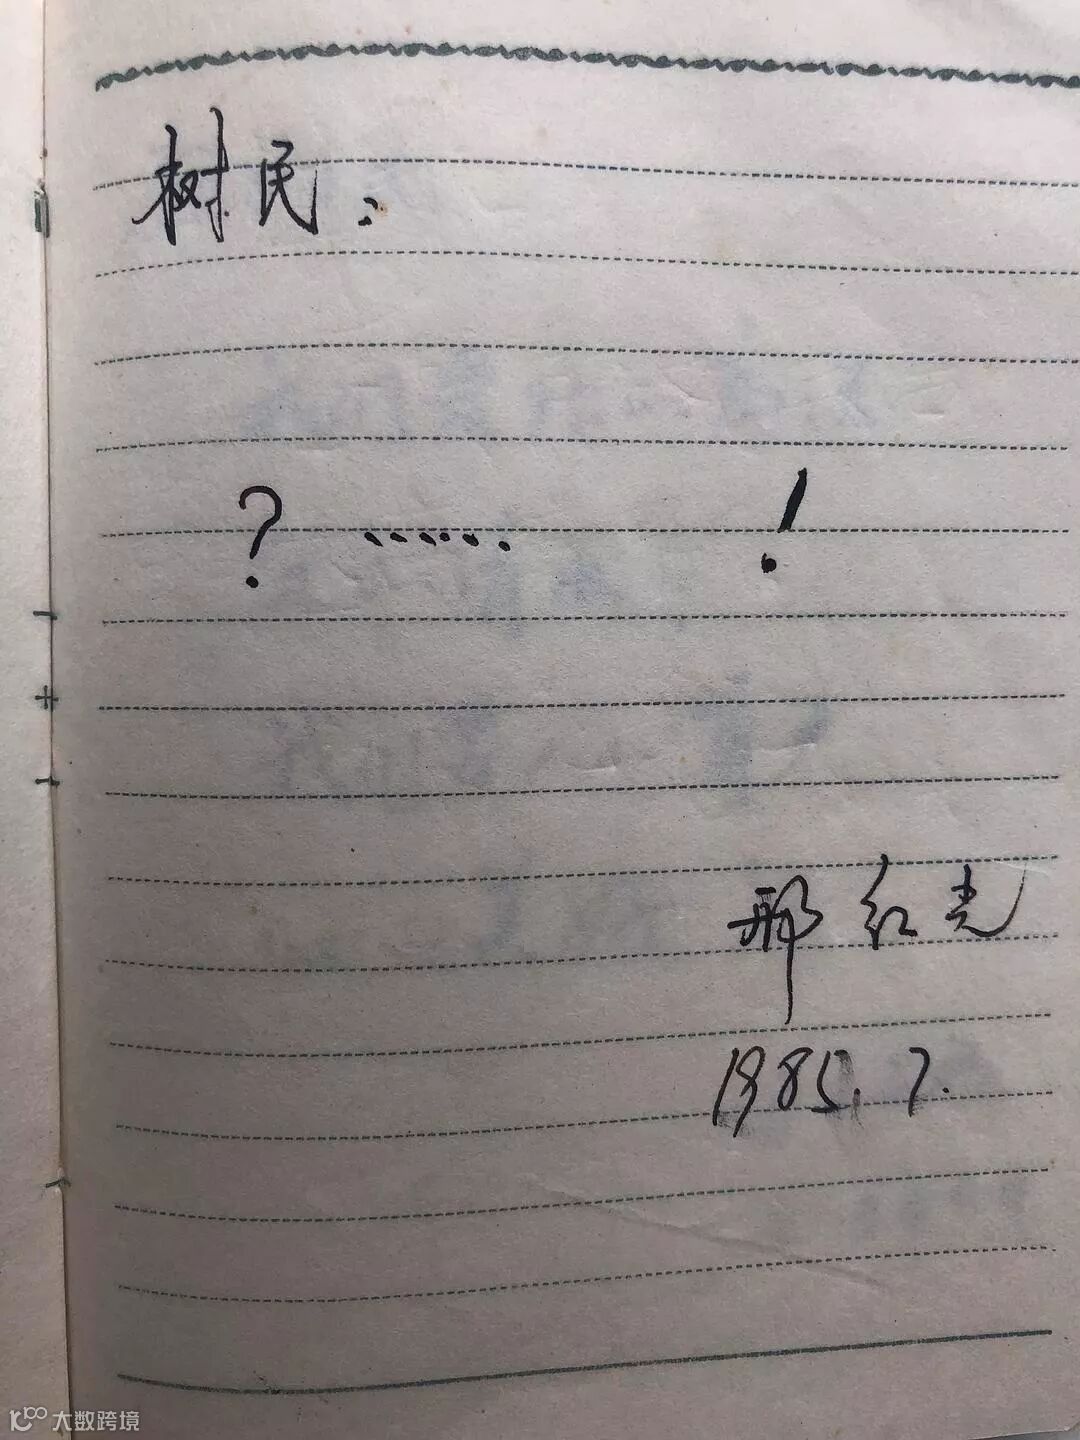 树民：
？…… ！
邢红光
1985.7.
大数跨境